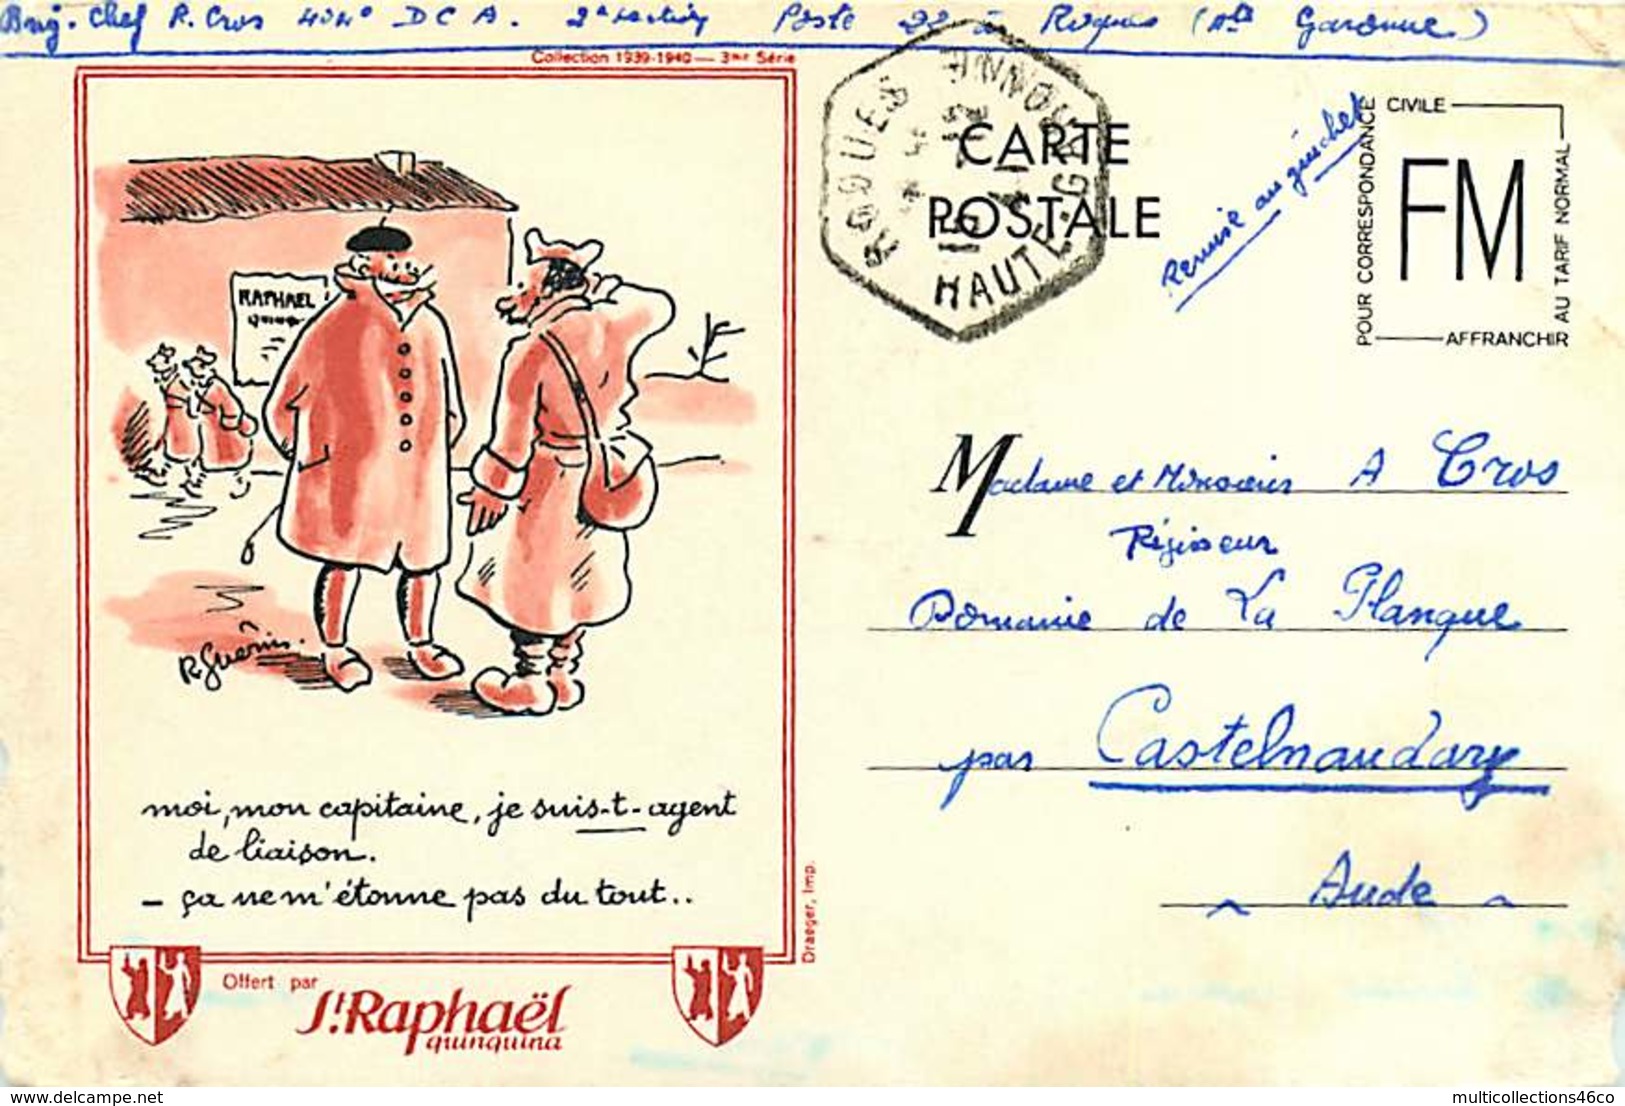 Brig. Chef R. Cros 404° D C A. 2e section Poste 22 à Roques (Hte Garonne)
Collection 1939-1940 — 3me Série
CARTE
POSTALE
ROQUES
HAUTE-GARONNE
Remise au guichet
POUR CORRESPONDANCE CIVILE
FM
AFFRANCHIR AU TARIF NORMAL
RAPHAEL
quinq
R Guérin.
Madame et Monsieur A Cros
Régisseur
Domaine de La Planque
par Castelnaudary
Aude
moi, mon capitaine, je suis-t-agent
de liaison.
— ça ne m'étonne pas du tout..
Draeger, Imp.
Offert par
St. Raphaël
quinquina
www.delcampe.net
multicollections46co